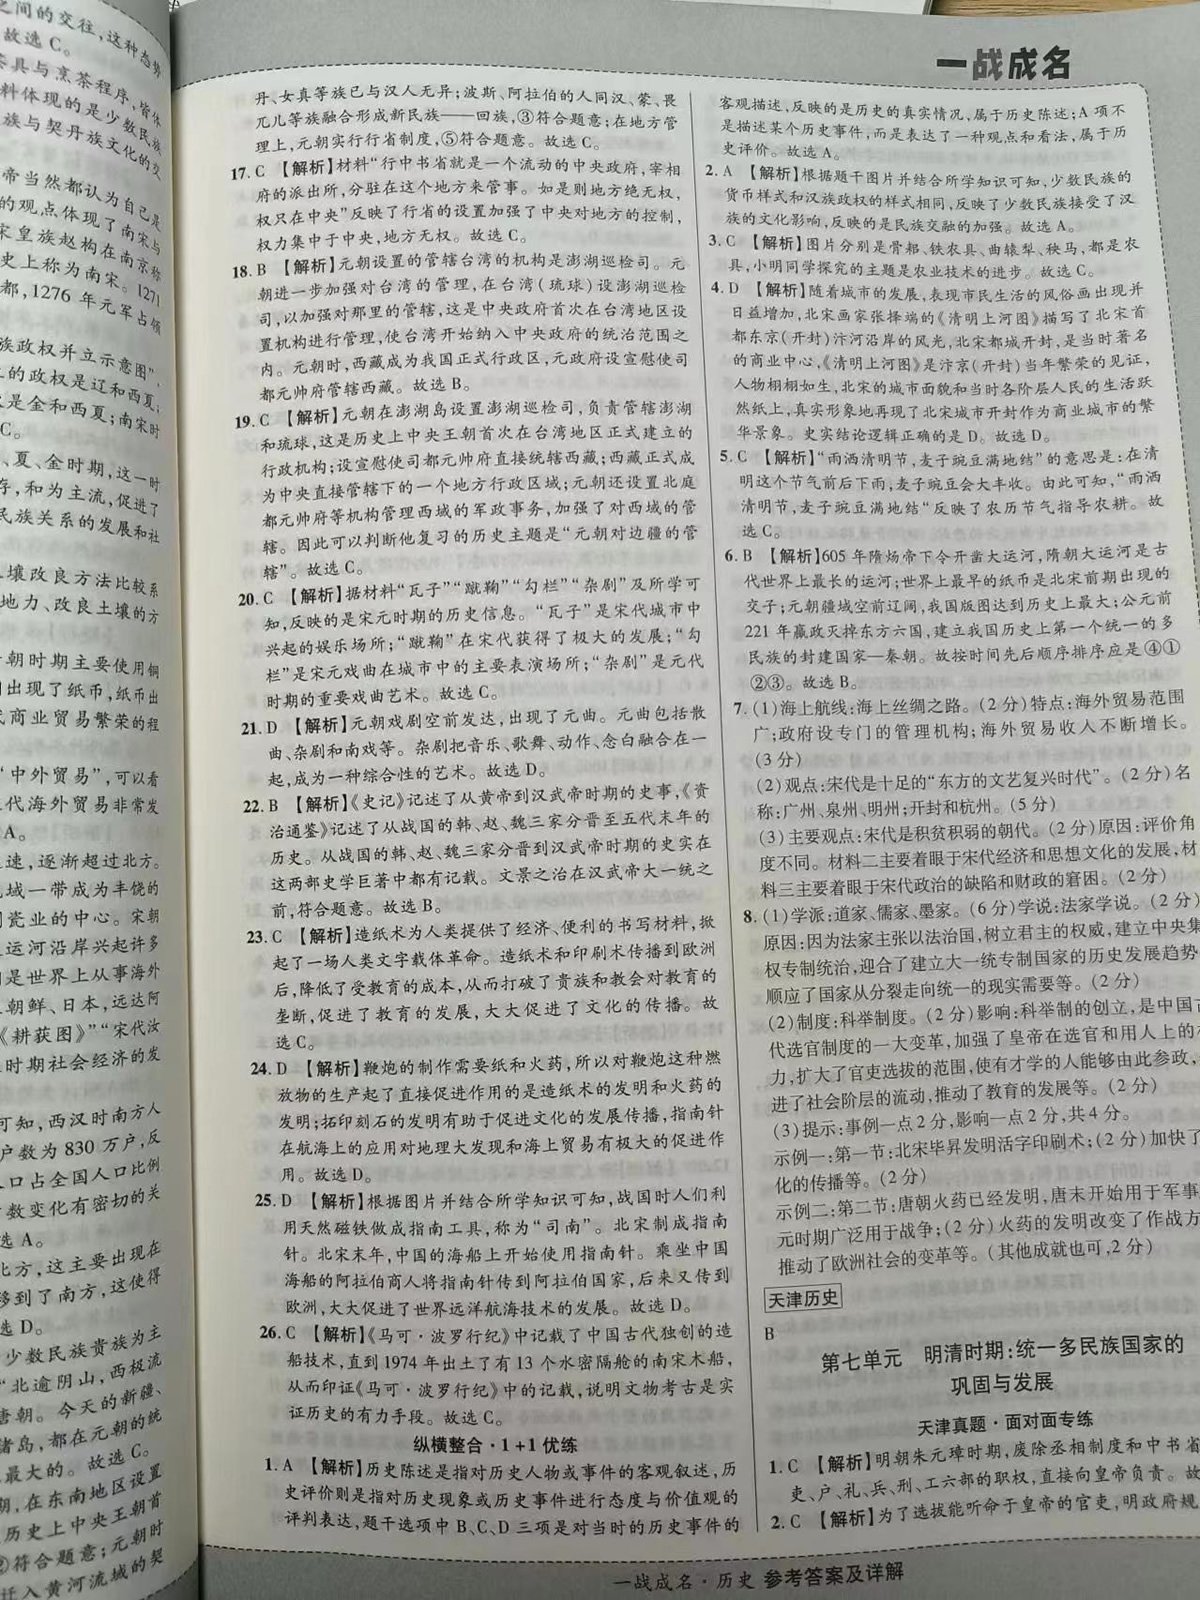 之间的交往,这种态势
故选 C。
茶具与烹茶程序,皆体
料体现的是少数民族
族与契丹族文化的交
帝当然都认为自己是
的观点体现了南宋与
宋皇族赵构在南京称
史上称为南宋。1271
都,1276 年元军占领
族政权并立示意图”,
立的政权是辽和西夏;
是金和西夏;南宋时
C。
、夏、金时期,这一时
存,和为主流,促进了
民族关系的发展和社
壤改良方法比较系
地力、改良土壤的方
朝时期主要使用铜
出现了纸币,纸币出
商业贸易繁荣的程
“中外贸易”,可以看
代海外贸易非常发
A。
速,逐渐超过北方。
域一带成为丰饶的
瓷业的中心。宋朝
运河沿岸兴起许多
是世界上从事海外
朝鲜、日本,远达阿
《耕获图》“宋代汝
时期社会经济的发
可知,西汉时南方人
户数为 830 万户,反
口占全国人口比例
数变化有密切的关
选 A。
北方,这主要出现在
移到了南方,这使得
选 D。
少数民族贵族为主
“北逾阴山,西极流
唐朝。今天的新疆、
诸岛,都在元朝的统
最大的。故选 C。
期,在东南地区设置
历史上中央王朝首
②符合题意;元朝时
迁入黄河流域的契
一战成名
丹、女真等族已与汉人无异;波斯、阿拉伯的人同汉、蒙、畏
兀儿等族融合形成新民族——回族,③符合题意;在地方管
理上,元朝实行行省制度,⑤符合题意。故选 C。
17. C 【解析】材料“行中书省就是一个流动的中央政府,宰相
府的派出所,分驻在这个地方来管事。如是则地方绝无权,
权只在中央”反映了行省的设置加强了中央对地方的控制,
权力集中于中央,地方无权。故选 C。
18. B 【解析】元朝设置的管辖台湾的机构是澎湖巡检司。元
朝进一步加强对台湾的管理,在台湾(琉球)设澎湖巡检
司,以加强对那里的管辖,这是中央政府首次在台湾地区设
置机构进行管理,使台湾开始纳入中央政府的统治范围之
内。元朝时,西藏成为我国正式行政区,元政府设宣慰使司
都元帅府管辖西藏。故选 B。
19. C 【解析】元朝在澎湖岛设置澎湖巡检司,负责管辖澎湖
和琉球,这是历史上中央王朝首次在台湾地区正式建立的
行政机构;设宣慰使司都元帅府直接统辖西藏;西藏正式成
为中央直接管辖下的一个地方行政区域;元朝还设置北庭
都元帅府等机构管理西域的军政事务,加强了对西域的管
辖。因此可以判断他复习的历史主题是“元朝对边疆的管
辖”。故选 C。
20. C 【解析】据材料“瓦子”“蹴鞠”“勾栏”“杂剧”及所学可
知,反映的是宋元时期的历史信息。“瓦子”是宋代城市中
兴起的娱乐场所;“蹴鞠”在宋代获得了极大的发展;“勾
栏”是宋元戏曲在城市中的主要表演场所;“杂剧”是元代
时期的重要戏曲艺术。故选 C。
21. D 【解析】元朝戏剧空前发达,出现了元曲。元曲包括散
曲、杂剧和南戏等。杂剧把音乐、歌舞、动作、念白融合在一
起,成为一种综合性的艺术。故选 D。
22. B 【解析】《史记》记述了从黄帝到汉武帝时期的史事,《资
治通鉴》记述了从战国的韩、赵、魏三家分晋至五代末年的
历史。从战国的韩、赵、魏三家分晋到汉武帝时期的史实在
这两部史学巨著中都有记载。文景之治在汉武帝大一统之
前,符合题意。故选 B。
23. C 【解析】造纸术为人类提供了经济、便利的书写材料,掀
起了一场人类文字载体革命。造纸术和印刷术传播到欧洲
后,降低了受教育的成本,从而打破了贵族和教会对教育的
垄断,促进了教育的发展,大大促进了文化的传播。故
选 C。
24. D 【解析】鞭炮的制作需要纸和火药,所以对鞭炮这种燃
放物的生产起了直接促进作用的是造纸术的发明和火药的
发明;拓印刻石的发明有助于促进文化的发展传播,指南针
在航海上的应用对地理大发现和海上贸易有极大的促进作
用。故选 D。
25. D 【解析】根据图片并结合所学知识可知,战国时人们利
用天然磁铁做成指南工具,称为“司南”。北宋制成指南
针。北宋末年,中国的海船上开始使用指南针。乘坐中国
海船的阿拉伯商人将指南针传到阿拉伯国家,后来又传到
欧洲,大大促进了世界远洋航海技术的发展。故选 D。
26. C 【解析】《马可·波罗行纪》中记载了中国古代独创的造
船技术,直到 1974 年出土了有 13 个水密隔舱的南宋木船,
从而印证《马可·波罗行纪》中的记载,说明文物考古是实
证历史的有力手段。故选 C。
纵横整合·1+1 优练
1. A 【解析】历史陈述是指对历史人物或事件的客观叙述,历
史评价则是指对历史现象或历史事件进行态度与价值观的
评判表达,题干选项中 B、C、D 三项是对当时的历史事件的
客观描述,反映的是历史的真实情况,属于历史陈述;A 项不
是描述某个历史事件,而是表达了一种观点和看法,属于历
史评价。故选 A。
2. A 【解析】根据题干图片并结合所学知识可知,少数民族的
货币样式和汉族政权的样式相同,反映了少数民族接受了汉
族的文化影响,反映的是民族交融的加强。故选 A。
3. C 【解析】图片分别是骨耜、铁农具、曲辕犁、秧马,都是农
具,小明同学探究的主题是农业技术的进步。故选 C。
4. D 【解析】随着城市的发展,表现市民生活的风俗画出现并
日益增加,北宋画家张择端的《清明上河图》描写了北宋首
都东京(开封)汴河沿岸的风光,北宋都城开封,是当时著名
的商业中心,《清明上河图》是汴京(开封)当年繁荣的见证,
人物栩栩如生,北宋的城市面貌和当时各阶层人民的生活跃
然纸上,真实形象地再现了北宋城市开封作为商业城市的繁
华景象。史实结论逻辑正确的是 D。故选 D。
5. C 【解析】“雨洒清明节,麦子豌豆满地结”的意思是:在清
明这个节气前后下雨,麦子豌豆会大丰收。由此可知,“雨洒
清明节,麦子豌豆满地结”反映了农历节气指导农耕。故
选 C。
6. B 【解析】605 年隋炀帝下令开凿大运河,隋朝大运河是古
代世界上最长的运河;世界上最早的纸币是北宋前期出现的
交子;元朝疆域空前辽阔,我国版图达到历史上最大;公元前
221 年嬴政灭掉东方六国,建立我国历史上第一个统一的多
民族的封建国家—秦朝。故按时间先后顺序排序应是④①
②③。故选 B。
7. (1)海上航线:海上丝绸之路。(2 分)特点:海外贸易范围
广;政府设专门的管理机构;海外贸易收入不断增长。
(3 分)
(2)观点:宋代是十足的“东方的文艺复兴时代”。(2 分)名
称:广州、泉州、明州;开封和杭州。(5 分)
(3)主要观点:宋代是积贫积弱的朝代。(2 分)原因:评价角
度不同。材料二主要着眼于宋代经济和思想文化的发展,材
料三主要着眼于宋代政治的缺陷和财政的窘困。(2 分)
8. (1)学派:道家、儒家、墨家。(6 分)学说:法家学说。(2 分)
原因:因为法家主张以法治国,树立君主的权威,建立中央集
权专制统治,迎合了建立大一统专制国家的历史发展趋势,
顺应了国家从分裂走向统一的现实需要等。(2 分)
(2)制度:科举制度。(2 分)影响:科举制的创立,是中国古
代选官制度的一大变革,加强了皇帝在选官和用人上的权
力,扩大了官吏选拔的范围,使有才学的人能够由此参政,
进了社会阶层的流动,推动了教育的发展等。(2 分)
(3)提示:事例一点 2 分,影响一点 2 分,共 4 分。
示例一:第一节:北宋毕昇发明活字印刷术;(2 分)加快了
化的传播等。(2 分)
示例二:第二节:唐朝火药已经发明,唐末开始用于军事
元时期广泛用于战争;(2 分)火药的发明改变了作战方
推动了欧洲社会的变革等。(其他成就也可,2 分)
天津历史
B
第七单元 明清时期:统一多民族国家的
巩固与发展
天津真题·面对面专练
1. C 【解析】明朝朱元璋时期,废除丞相制度和中书省
吏、户、礼、兵、刑、工六部的职权,直接向皇帝负责。故
2. C 【解析】为了选拔能听命于皇帝的官吏,明政府规
一战成名·历史 参考答案及详解